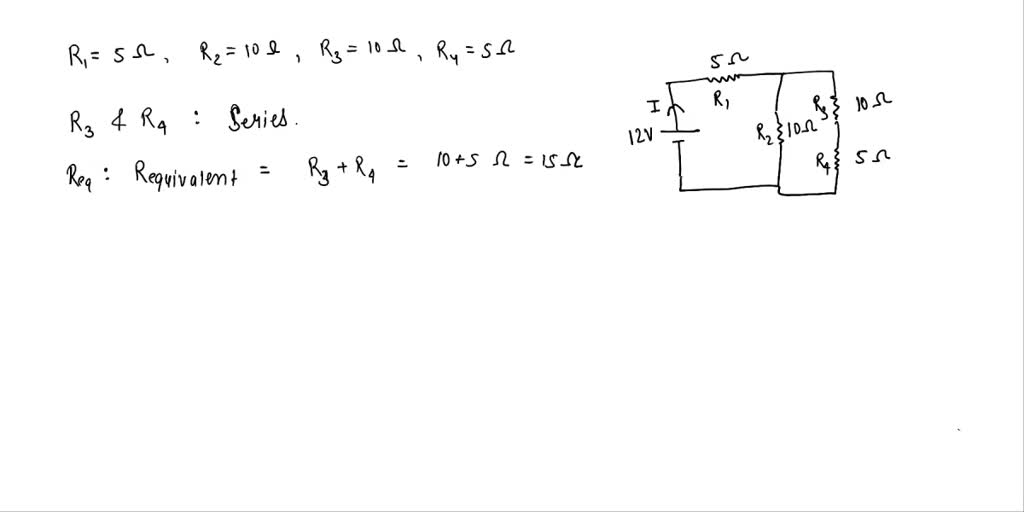 R₁ = 5 Ω, R₂ = 10 Ω, R₃ = 10 Ω, R₄ = 5 Ω
R₃ & R₄ : Series.
Req : Requivalent = R₃ + R₄ = 10 + 5 Ω = 15 Ω
5 Ω
R₁
I
12V
R₂ 10 Ω
R₃ 10 Ω
R₄ 5 Ω